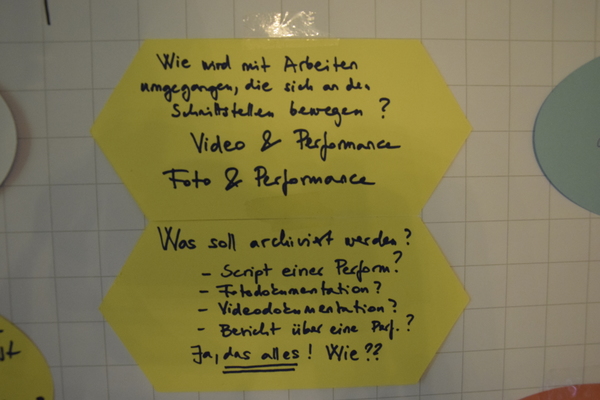 Wie wird mit Arbeiten
umgegangen, die sich an den
Schnittstellen bewegen?
Video & Performance
Foto & Performance
Was soll archiviert werden?
- Script einer Perform.?
- Fotodokumentation?
- Videodokumentation?
- Bericht über eine Perf.?
Ja, das alles! Wie??